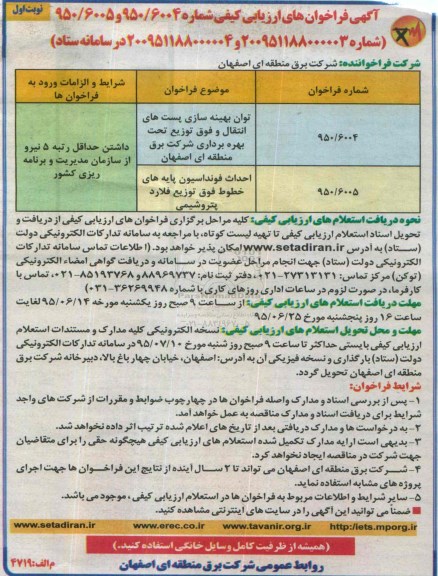 نوبت اول
آگهی فراخوان های ارزیابی کیفی شماره ۹۵۰/۶۰۰۴ و ۹۵۰/۶۰۰۵
(شماره ۲۰۰۹۵۱۱۸۸۰۰۰۰۰۳ و ۲۰۰۹۵۱۱۸۸۰۰۰۰۰۴ در سامانه ستاد)
شرکت فراخواننده: شرکت برق منطقه ای اصفهان
شماره فراخوان
موضوع فراخوان
شرایط و الزامات ورود به فراخوان ها
۹۵۰/۶۰۰۴
توان بهینه سازی پست های
انتقال و فوق توزیع تحت
بهره برداری شرکت برق
منطقه ای اصفهان
داشتن حداقل رتبه ۵ نیرو
از سازمان مدیریت و برنامه
ریزی کشور
۹۵۰/۶۰۰۵
احداث فونداسیون پایه های
خطوط فوق توزیع فلارد
پتروشیمی
نحوه دریافت استعلام های ارزیابی کیفی: کلیه مراحل برگزاری فراخوان های ارزیابی کیفی از دریافت و
تحویل اسناد استعلام ارزیابی کیفی تا تهیه لیست کوتاه، با مراجعه به سامانه تدارکات الکترونیکی دولت
(ستاد) به آدرس www.setadiran.ir امکان پذیر خواهد بود. (اطلاعات تماس سامانه تدارکات
الکترونیکی دولت (ستاد) جهت انجام مراحل عضویت در سامانه و دریافت گواهی امضاء الکترونیکی
(توکن) مرکز تماس: ۲۷۳۱۳۱۳۱-۰۲۱، دفتر ثبت نام: ۸۸۹۶۹۷۳۷ و ۸۵۱۹۳۷۶۸-۰۲۱ تماس با
کارفرما، در صورت لزوم در ساعات اداری روزهای کاری با شماره ۳۶۲۶۹۹۴۸-۰۳۱)
مهلت دریافت استعلام های ارزیابی کیفی: از ساعت ۹ صبح روز یکشنبه مورخه ۹۵/۰۶/۱۴ لغایت
ساعت ۱۶ روز پنجشنبه مورخ ۹۵/۰۶/۲۵
مهلت و محل تحویل استعلام های ارزیابی کیفی: نسخه الکترونیکی کلیه مدارک و مستندات استعلام
ارزیابی کیفی بایستی حداکثر تا ساعت ۹ صبح روز شنبه مورخ ۹۵/۰۷/۱۰ در سامانه تدارکات الکترونیکی
دولت (ستاد) بارگذاری و نسخه فیزیکی آن به آدرس: اصفهان، خیابان چهار باغ بالا، دبیرخانه شرکت برق
منطقه ای اصفهان تحویل گردد.
شرایط فراخوان:
۱- پس از بررسی اسناد و مدارک واصله فراخوان ها در چهارچوب ضوابط و مقررات از شرکت های واجد
شرایط برای دریافت اسناد و مدارک مناقصه به عمل خواهد آمد.
۲- به درخواست ها و مدارک دریافتی بعد از تاریخ های اعلام شده ترتیب اثر داده نخواهد شد.
۳- بدیهی است ارایه مدارک تکمیل شده استعلام های ارزیابی کیفی هیچگونه حقی را برای متقاضیان
جهت شرکت در مناقصه ایجاد نخواهد کرد.
۴- شرکت برق منطقه ای اصفهان می تواند تا ۲ سال آینده از نتایج این فراخوان ها جهت اجرای
پروژه های مشابه استفاده نماید.
۵- سایر شرایط و اطلاعات مربوط به فراخوان ها در استعلام ارزیابی کیفی، موجود می باشد.
ضمنا می توانید این آگهی را در سایت های اینترنتی مشاهده کنید.
http://iets.mporg.ir www.tavanir.org.ir www.erec.co.ir www.setadiran.ir
(همیشه از ظرفیت کامل وسایل خانگی استفاده کنید.)
روابط عمومی شرکت برق منطقه ای اصفهان
م الف: ۴۷۱۹